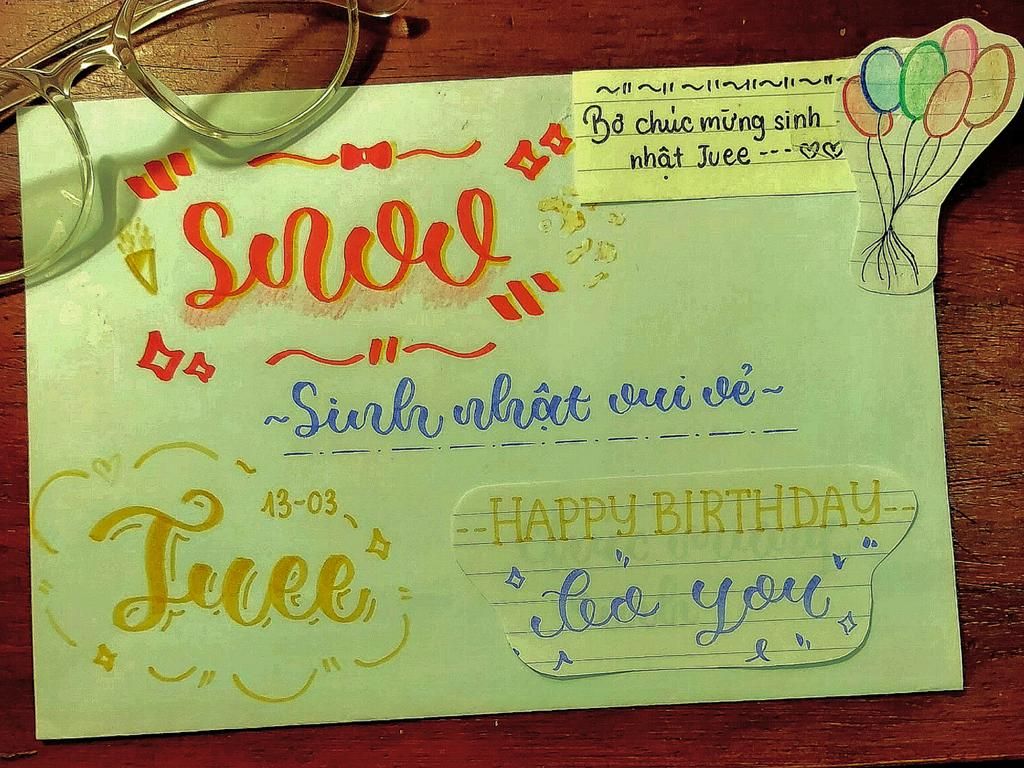 Bơ chúc mừng sinh
nhật Juee --- ♡♡
~Sinh nhật vui vẻ~
13-03
Juee
--HAPPY BIRTHDAY--
to you